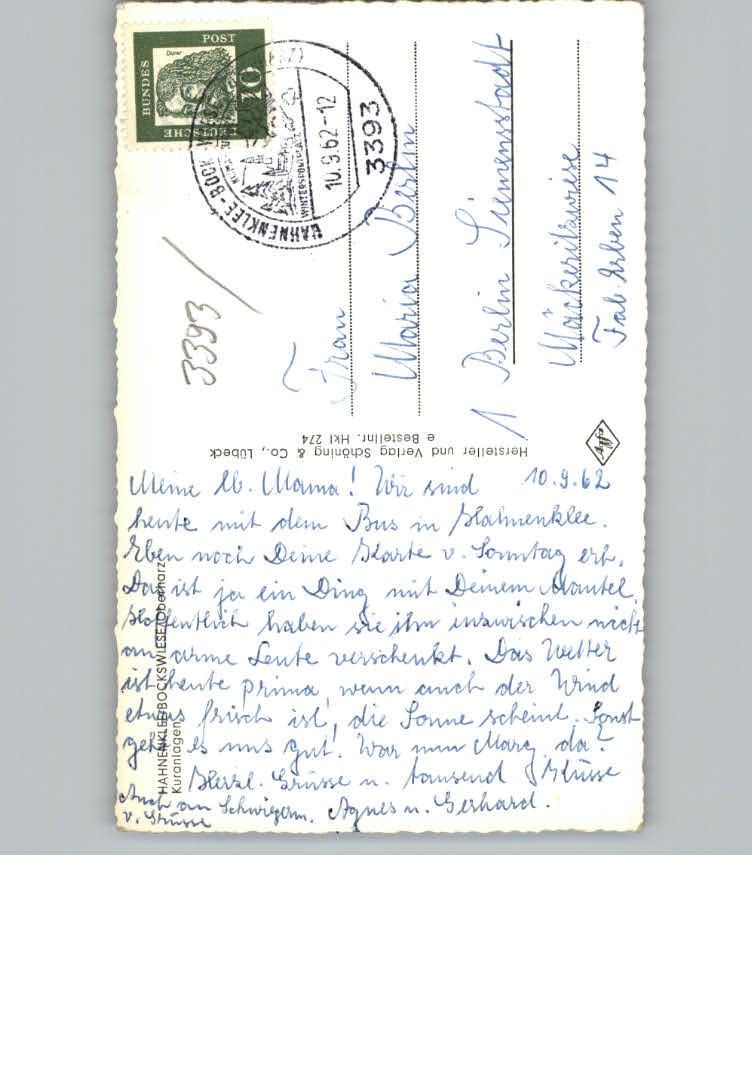 DEUTSCHE
BUNDES
POST
Dürer
10
HAHNENKLEE-BOCK
WINTERSPORTPLATZ
10.9.62-12
3393
3393
Frau
Maria Berlin
1 Berlin Siemensstadt
Mäckeritzwiese
14
Hersteller und Verlag Schöning & Co., Lübeck
e Bestellnr. Hkl 274
HAHNENKLEE-BOCKSWIESE/Oberharz
Kuranlagen
10.9.62
Meine lb. Mama! Wir sind
heute mit dem Bus in Hahnenklee.
Eben noch Deine Karte v. Sonntag erh.
Das ist ja ein Ding mit Deinem Mantel.
Hoffentlich haben sie ihn inzwischen nicht
an arme Leute verschenkt. Das Wetter
ist heute prima, wenn auch der Wind
etwas frisch ist, die Sonne scheint. Sonst
geht es uns gut! War nun Marg. da?
Herzl. Grüsse u. tausend Küsse
Agnes u. Gerhard.
Auch an Schwiegerm.
v. Grüsse